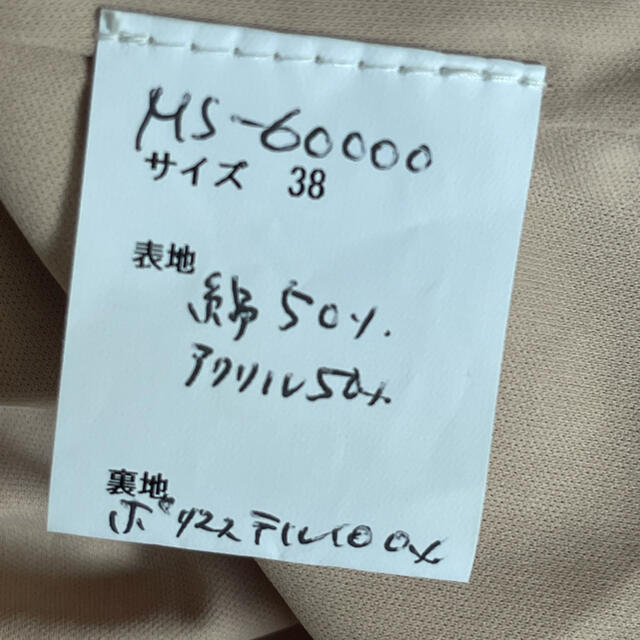 MS-60000
サイズ 38
表地
綿 50%
アクリル50%
裏地
ポリエステル100%